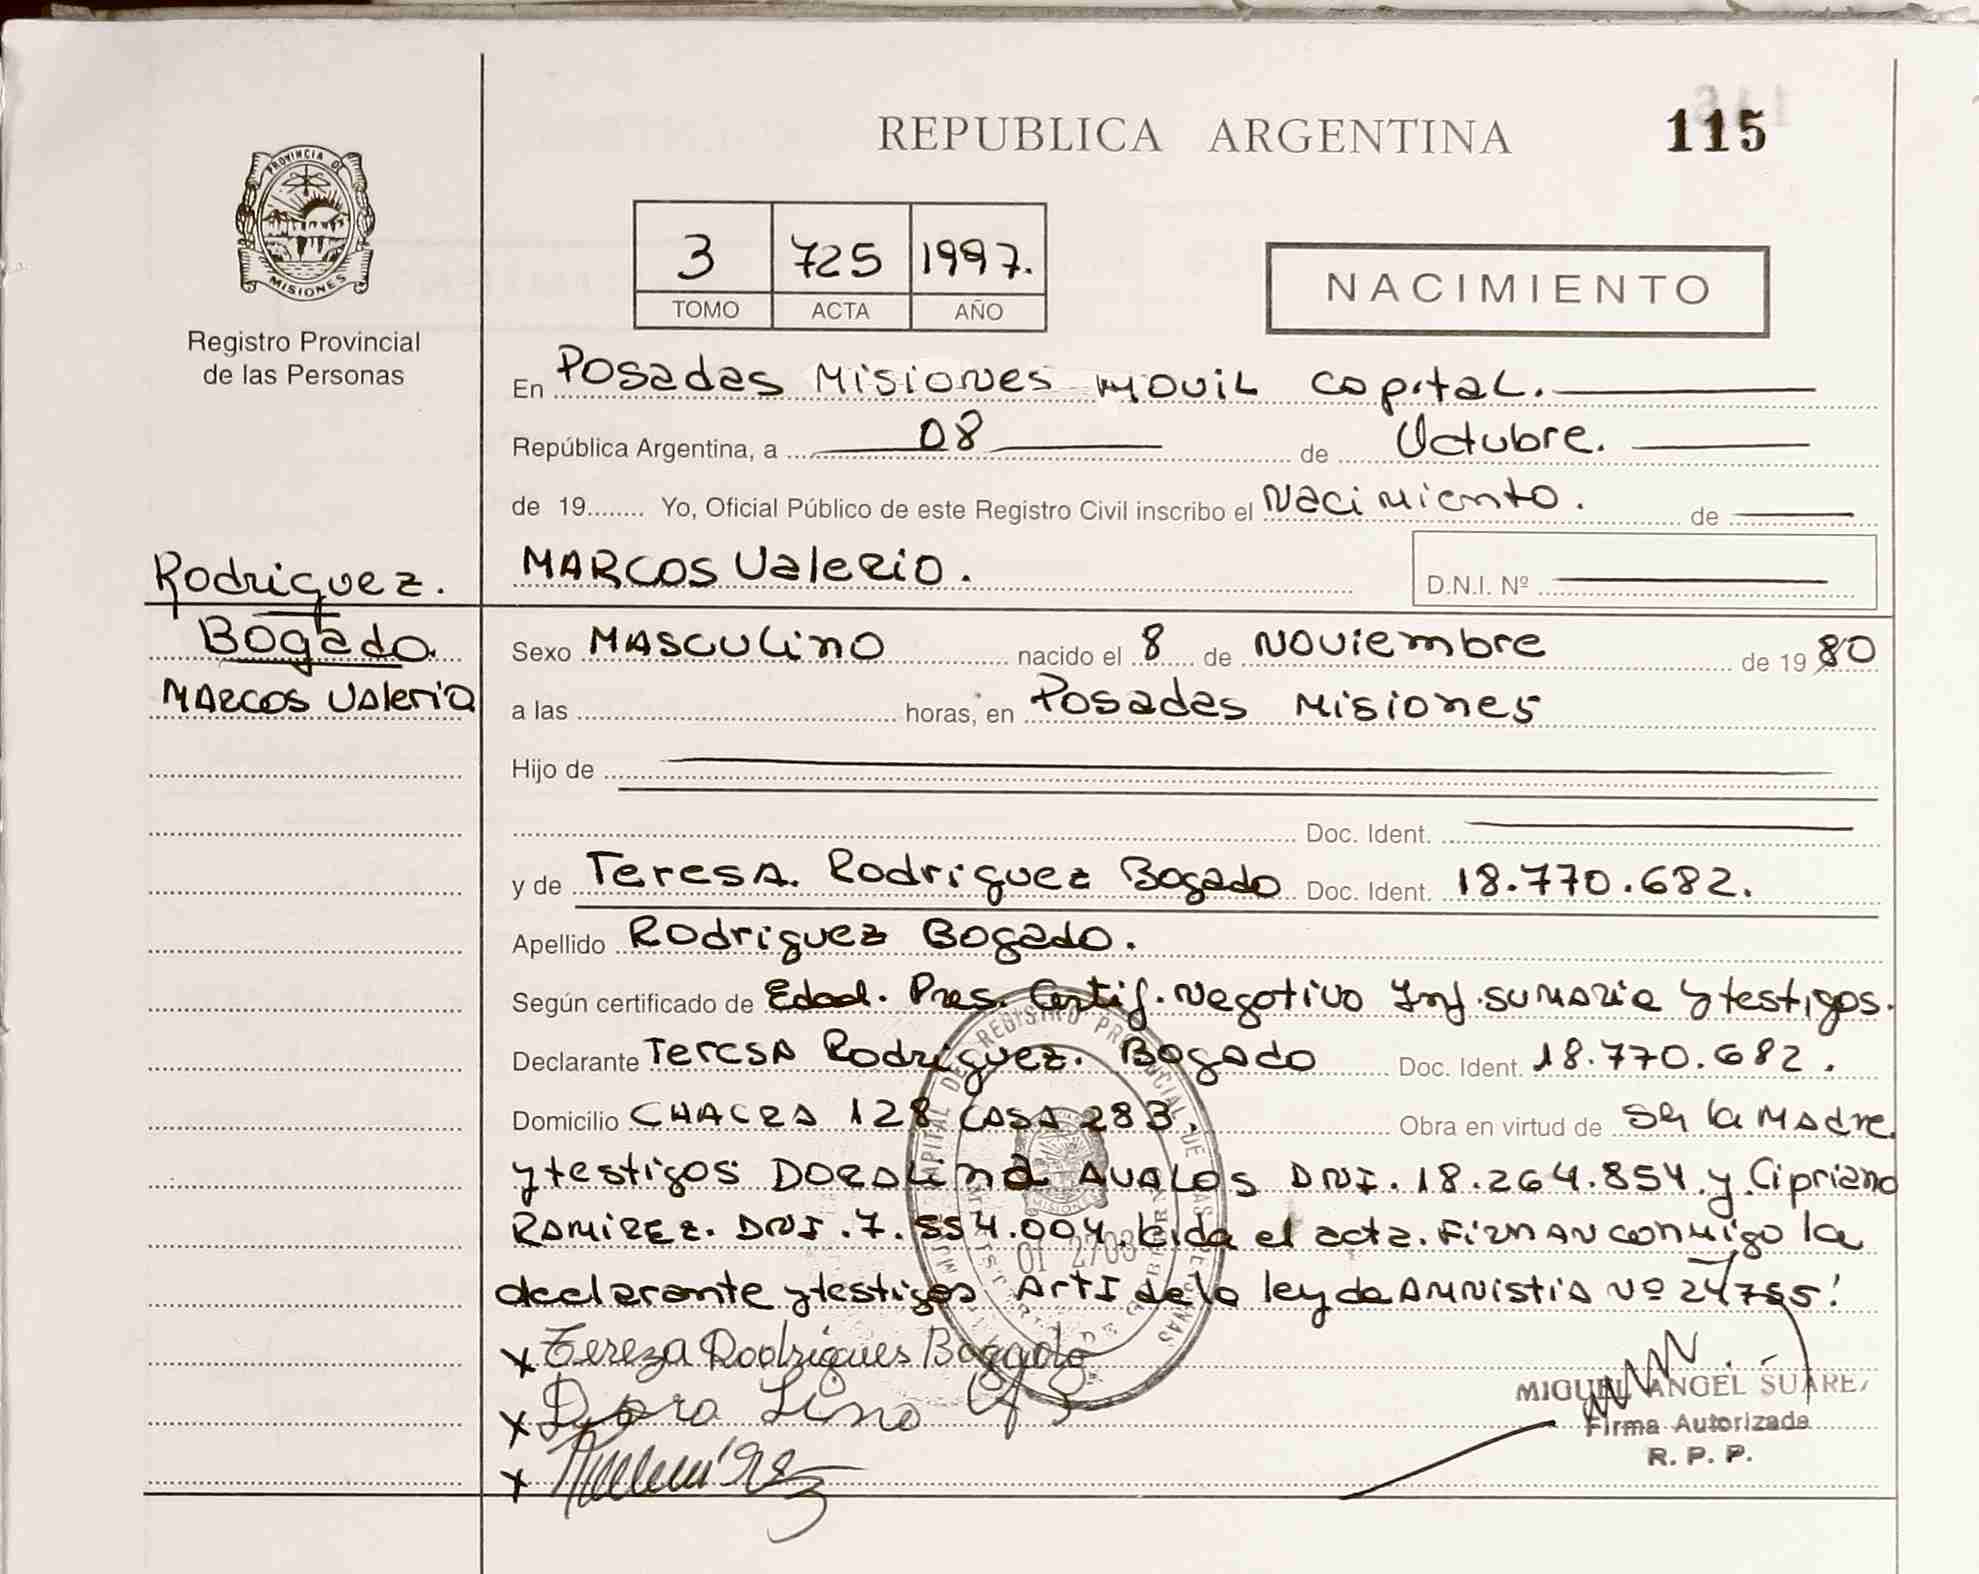 REPUBLICA ARGENTINA
115
PROVINCIA DE
MISIONES
Registro Provincial
de las Personas
3 725 1997.
TOMO ACTA AÑO
NACIMIENTO
En Posadas Misiones Movil Capital.
República Argentina, a 08 de Octubre.
de 19........ Yo, Oficial Público de este Registro Civil inscribo el Nacimiento. de
Rodriguez.
Bogado
Marcos Valerio
MARCOS Valerio.
D.N.I. Nº
Sexo MASCULino nacido el 8 de Noviembre de 19 80
a las horas, en Posadas Misiones
Hijo de
Doc. Ident.
y de TeresA. Rodriguez Bogado Doc. Ident. 18.770.682.
Apellido Rodriguez Bogado.
Según certificado de Edad. Pres. Certif. Negativo Inf. sumaria y testigos.
Declarante Teresa Rodriguez. Bogado Doc. Ident. 18.770.682.
Domicilio CHACRA 128 CASA 283. Obra en virtud de Ser la Madre
y testigos DORALinda AVALOS DNI. 18.264.854 y Cipriano
RAMIREZ. DNI. 7.554.004. Leida el acta. Firman conmigo la
declarante y testigos Art I de la ley de AMNistiA Nº 24755.
x Tereza Rodrigues Boggado
x Dora Lino
x
MIGUEL ANGEL SUAREZ
Firma Autorizada
R. P. P.